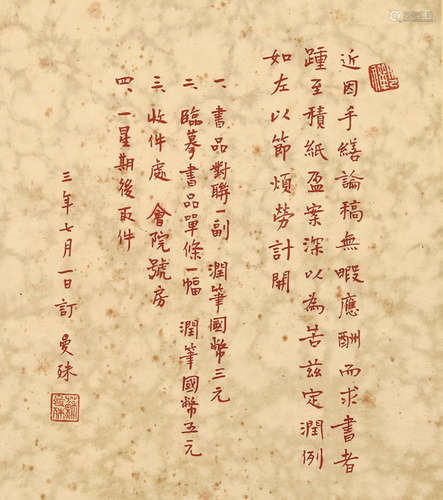 近因手繕論稿無暇應酬而求書者
踵至積紙盈案深以為苦茲定潤例
如左以節煩勞計開
一、書品對聯一副 潤筆國幣三元
二、臨摹書品單條一幅 潤筆國幣五元
三、收件處 會院號房
四、一星期後取件
三年七月一日訂 曼殊